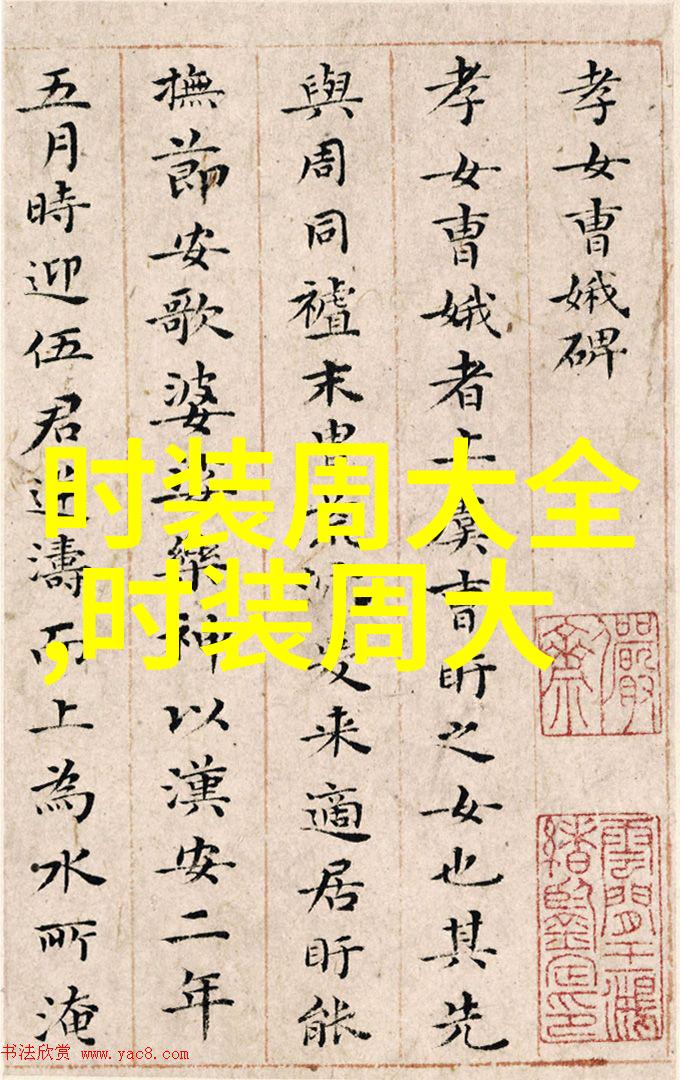 孝女曹娥碑
孝女曹娥者上虞曹盱之女也其先
與周同末胄爰来適居盱能
撫節安歌婆娑樂神以漢安二年
五月時迎伍君逆濤而上為水所淹
时装周大全
,时装周大
儼齋
雲間王鴻緒鑒定印
书法欣赏 www.yac8.com